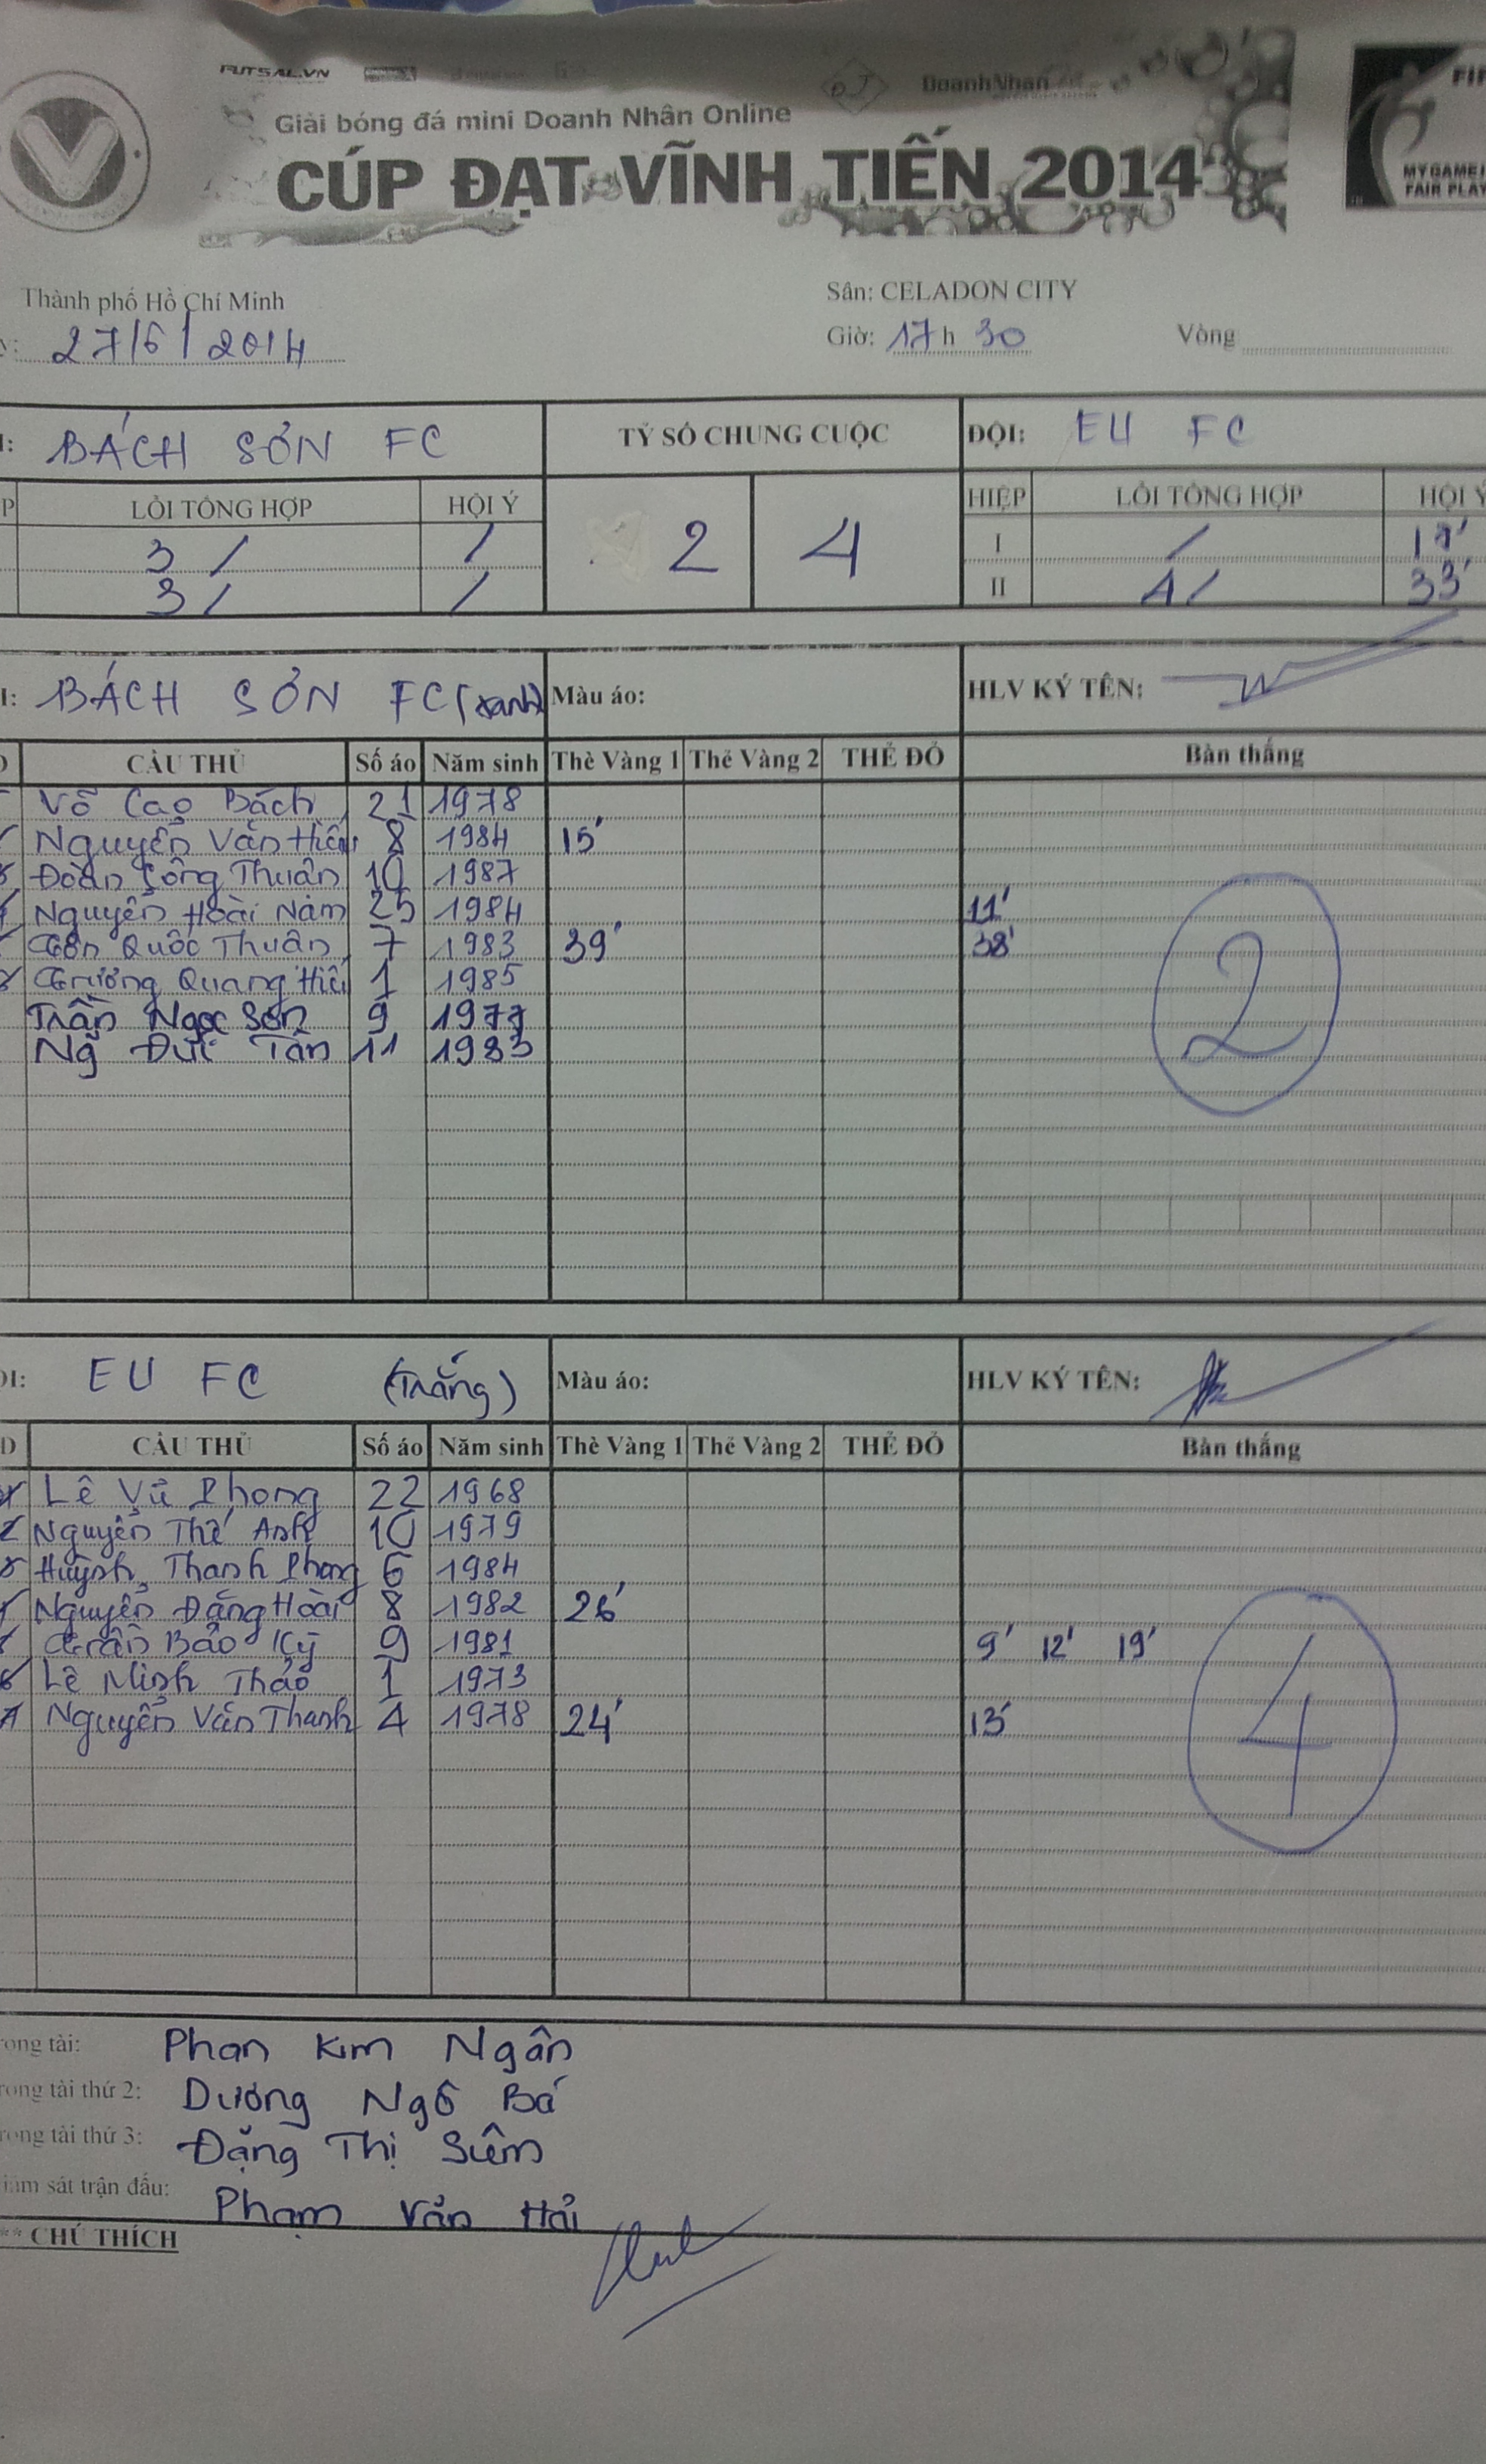 FUTSAL.VN DoanhNhan
Giải bóng đá mini Doanh Nhân Online
CÚP ĐẠT VĨNH TIẾN 2014
MY GAME
FAIR PLAY
Thành phố Hồ Chí Minh Sân: CELADON CITY
27/6/2014 Giờ: 17h 30 Vòng
BÁCH SƠN FC TỶ SỐ CHUNG CUỘC ĐỘI: EU FC
LỖI TỔNG HỢP HỘI Ý 2 4 HIỆP LỖI TỔNG HỢP HỘI Ý
3 / / I /
3 / / II 4 / 33'
BÁCH SƠN FC (xanh) Màu áo: HLV KÝ TÊN:
CẦU THỦ Số áo Năm sinh Thẻ Vàng 1 Thẻ Vàng 2 THẺ ĐỎ Bàn thắng
Võ Cao Bách 21 1978
Nguyễn Văn Hiếu 8 1984 15'
Đoàn Công Thuân 10 1987
Nguyễn Hoài Nam 25 1984 11'
Tôn Quốc Thuân 7 1983 39' 38'
Trương Quang Hiếu 1 1985
Trần Ngọc Sơn 9 1977
Ng Đức Tân 11 1983
2
EU FC (Trắng) Màu áo: HLV KÝ TÊN:
CẦU THỦ Số áo Năm sinh Thẻ Vàng 1 Thẻ Vàng 2 THẺ ĐỎ Bàn thắng
Lê Vũ Phong 22 1968
Nguyễn Thế Anh 10 1979
Huỳnh Thanh Phong 6 1984
Nguyễn Đăng Hoài 8 1982 26'
Trần Bảo Kỳ 9 1981 9' 12' 19'
Lê Minh Thảo 1 1973
Nguyễn Văn Thanh 4 1978 24' 13'
4
rọng tài: Phan Kim Ngân
rọng tài thứ 2: Dương Ngô Bá
rọng tài thứ 3: Đặng Thị Siêm
iám sát trận đấu: Phạm Văn Hải
** CHÚ THÍCH